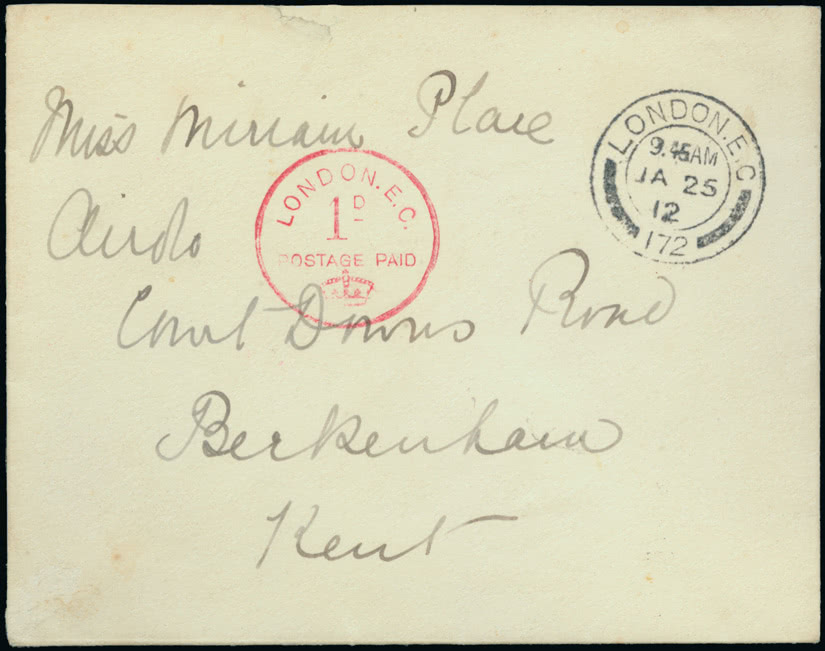 Miss Miriam Place
LONDON.E.C
9.45AM
JA 25
12
172
LONDON.E.C.
1D
POSTAGE PAID
Airdo
Court Downs Road
Berkenham
Kent